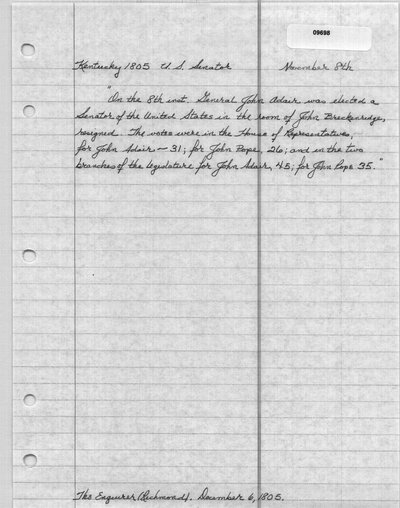 09698
Kentucky 1805 U.S. Senator November 8th
"On the 8th inst. General John Adair was elected a
Senator of the United States in the room of John Breckenridge,
resigned. The votes were in the House of Representatives,
for John Adair — 31; for John Pope, 26; and in the two
branches of the legislature for John Adair, 45; for John Pope 35."
The Enquirer (Richmond). December 6, 1805.